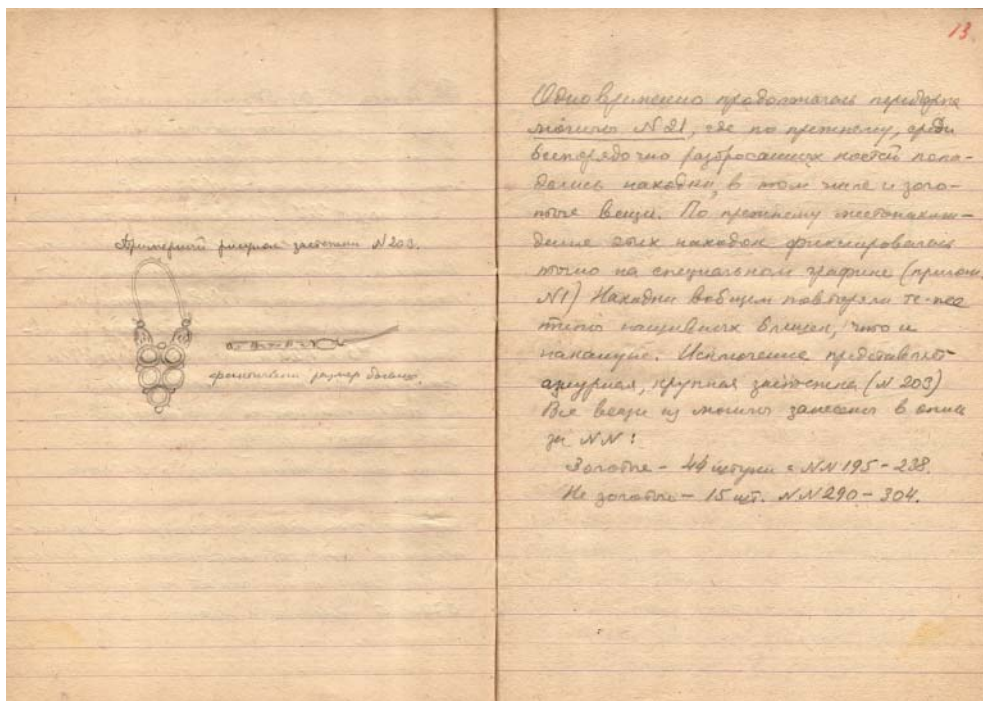 Примерный рисунок застежки N 203.
фактически размер больше.
13.
Одновременно продолжалась переборка
могилы N 21, где по прежнему, среди
беспорядочно разбросанных костей попа-
дались находки, в том числе и золо-
тые вещи. По прежнему местонахож-
дение этих находок фиксировалось
точно на специальном графике (прилож.
N1) Находки вобщем повторяли те-же
типы нашивных бляшек, что и
накануне. Исключение представляет
ажурная, крупная застежка (N 203)
Все вещи из могилы занесены в опись
за NN:
Золотые - 44 штуки = NN 195 - 238.
Не золотые - 15 шт. NN 290 - 304.